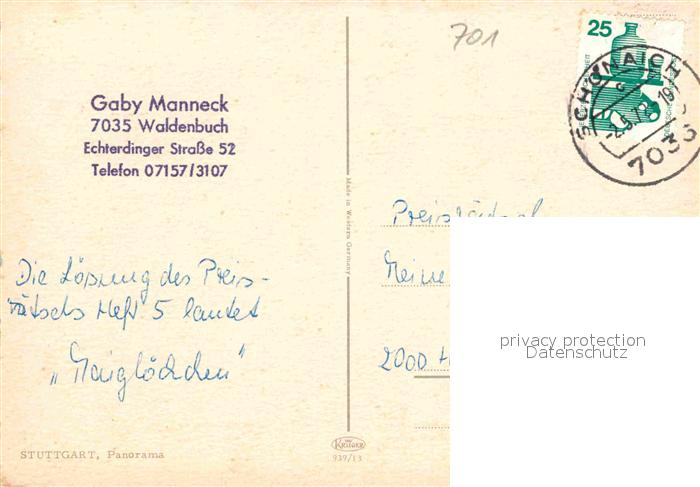 701
25
SCHÖNAICH
7033
Gaby Manneck
7035 Waldenbuch
Echterdinger Straße 52
Telefon 07157/3107
Made in Western Germany
Preisrätsel
Meine
2000 H
Die Lösung des Preis-
rätsels Heft 5 lautet
„Maiglöckchen"
privacy protection
Datenschutz
STUTTGART, Panorama
KRÜGER
939/13